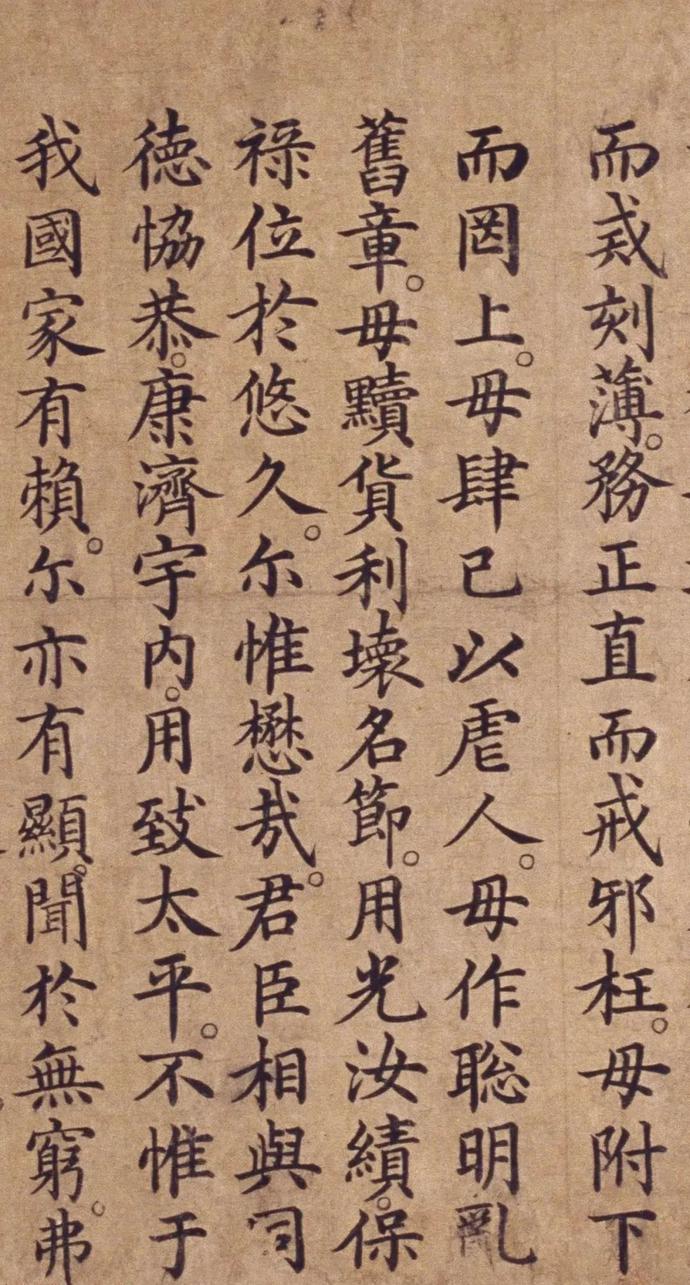 而戒刻薄。務正直而戒邪枉。毋附下
而罔上。毋肆己以虐人。毋作聡明亂
舊章。毋黷貨利壊名節。用光汝績。保
禄位於悠久。尓惟懋哉。君臣相與同
徳恊恭。康濟宇内。用致太平。不惟于
我國家有賴。尓亦有顯。聞於無窮。弗